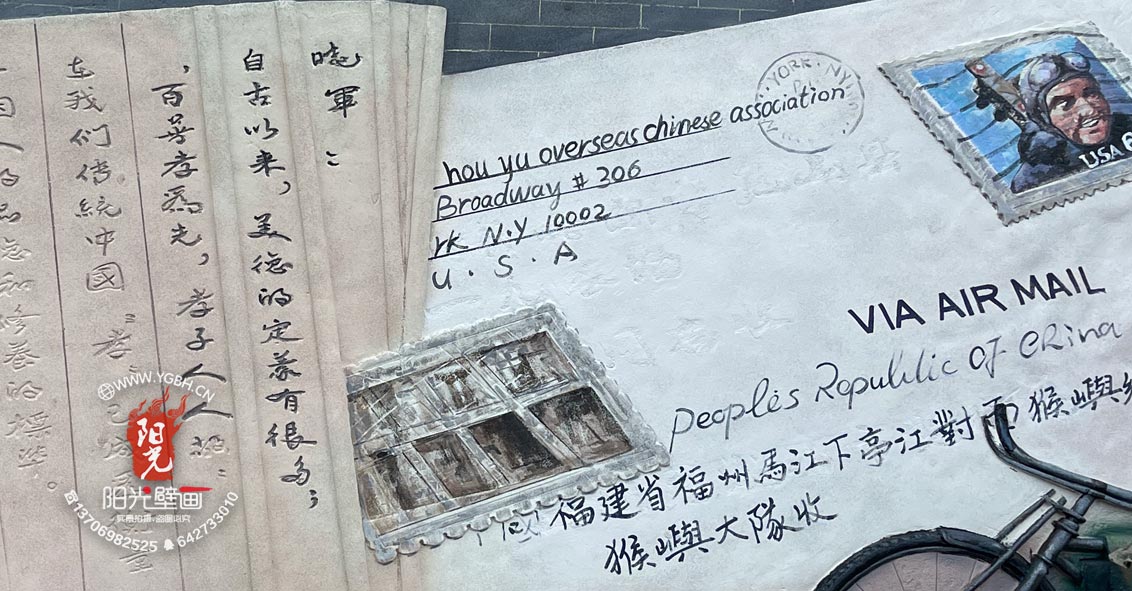 曉軍：
自古以来，美德的定義有很多，
，百善孝為先，孝子人人
在我们传統中國"孝"已
和修養的標準。
YORK, N.Y.
hou yu overseas chinese association
Broadway # 306
rk N.Y 10002
U . S . A
USA
VIA AIR MAIL
People's Republic OF China
福建省福州馬江下亭江對面猴嶼
猴嶼大隊收
WWW.YGBH.CN
阳光
阳光壁画
实景拍摄/盗图必究
13706982525
642733010